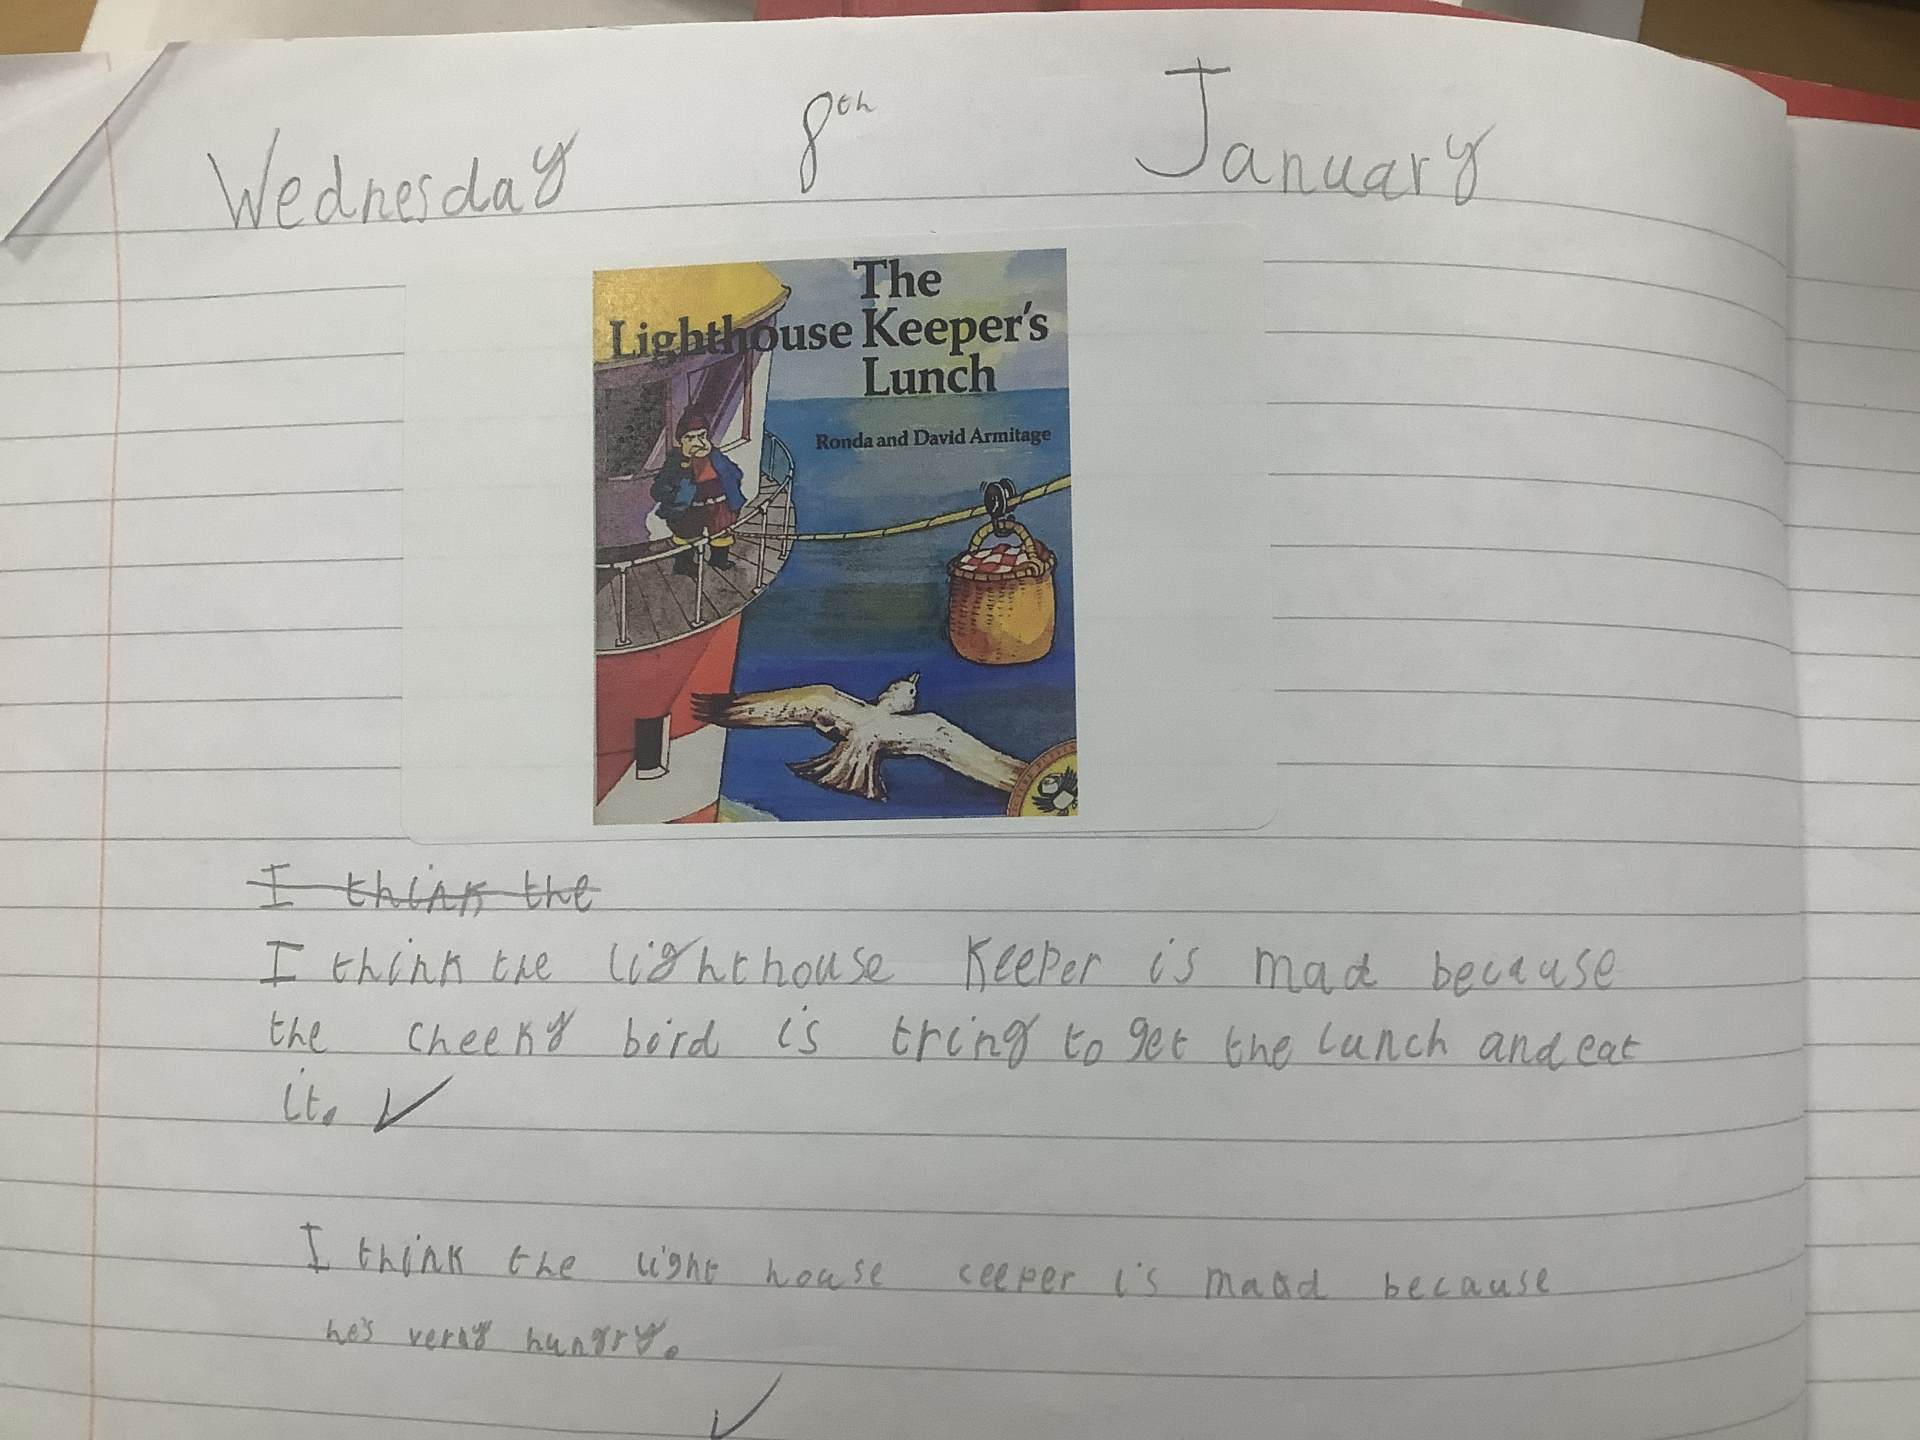 Wednesday 8th January
The
Lighthouse Keeper's
Lunch
Ronda and David Armitage
I think the
I think the lighthouse Keeper is mad because
the cheeky bird is tring to get the lunch and eat
it.
I think the light house ceeper is maad because
he's verry hungry.